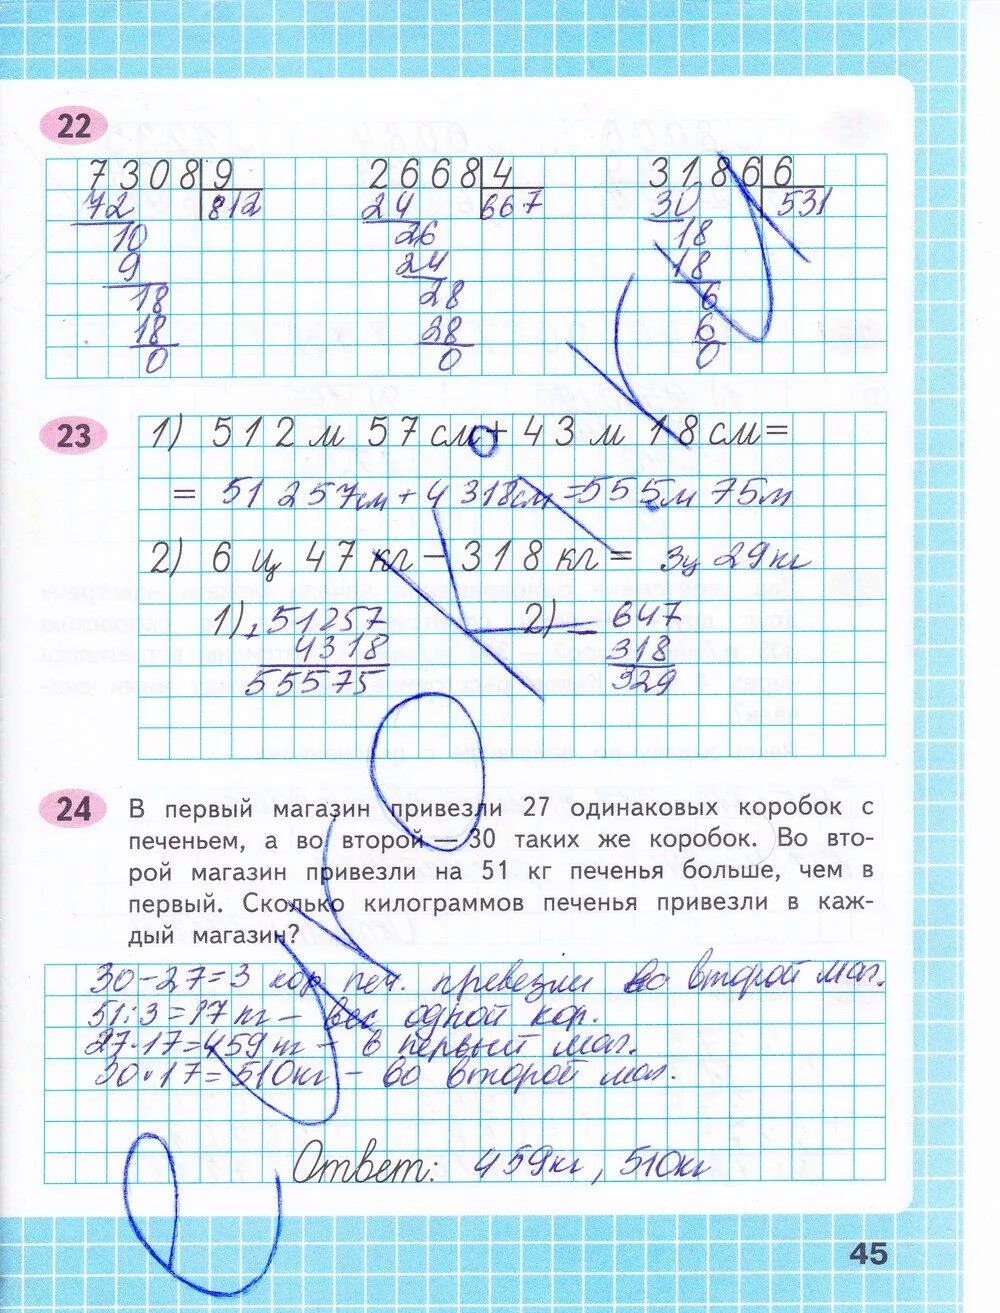 22
7308 9
72 812
10
9
18
18
0
2668 4
24 667
26
24
28
28
0
3186 6
30 531
18
18
6
6
0
23
1) 512 м 57 см + 43 м 18 см =
= 51 257см + 4 318см = 555м 75м
2) 6 ц 47 кг − 318 кг = 3ц 29кг
1) + 51257
4318
55575
2) − 647
318
329
24
В первый магазин привезли 27 одинаковых коробок с
печеньем, а во второй — 30 таких же коробок. Во вто-
рой магазин привезли на 51 кг печенья больше, чем в
первый. Сколько килограммов печенья привезли в каж-
дый магазин?
30-27=3 кор. печ. привезли во второй маг.
51:3=17кг - вес одной кор.
27·17=459кг - в первый маг.
30·17=510кг - во второй маг.
Ответ: 459кг, 510кг
45